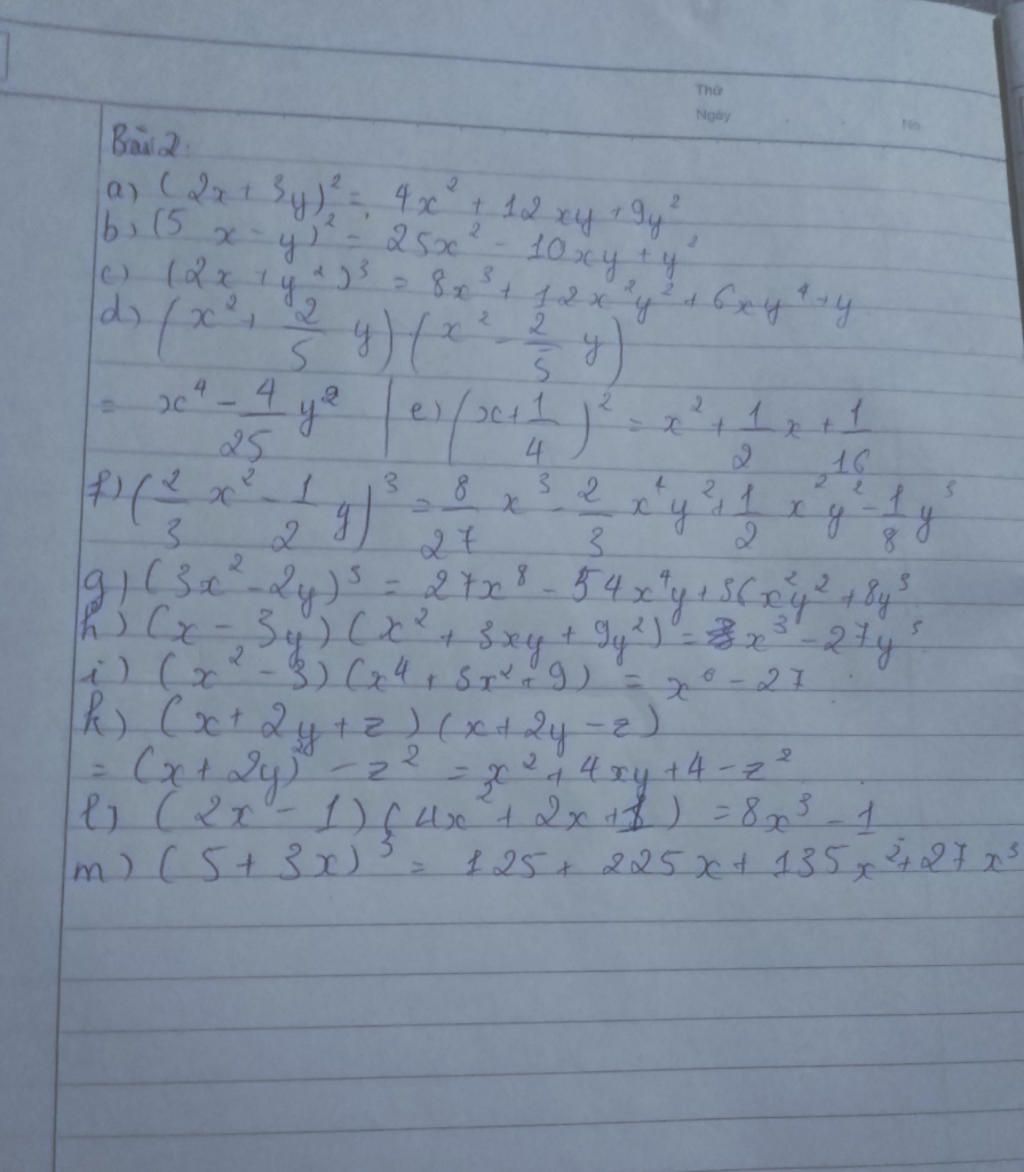 Thứ
Ngày
No.
Bài 2:
a) (2x + 3y)² = 4x² + 12xy + 9y²
b) (5 x - y)² = 25x² - 10xy + y²
c) (2x + y²)³ = 8x³ + 12x²y² + 6xy⁴ + y
d) (x² + 2/5 y) (x² - 2/5 y)
= x⁴ - 4/25 y² | e) (x + 1/4)² = x² + 1/2 x + 1/16
f) (2/3 x² - 1/2 y)³ = 8/27 x³ - 2/3 x⁴y² + 1/2 x²y² - 1/8 y³
g) (3x² - 2y)³ = 27x⁸ - 54x⁴y + 36x²y² + 8y³
h) (x - 3y) (x² + 3xy + 9y²) = x³ - 27y³
i) (x² - 3) (x⁴ + 3x² + 9) = x⁶ - 27
k) (x + 2y + z) (x + 2y - z)
= (x + 2y)² - z² = x² + 4xy + 4 - z²
l) (2x - 1) (4x² + 2x + 1) = 8x³ - 1
m) (5 + 3x)³ = 125 + 225x + 135x² + 27x³